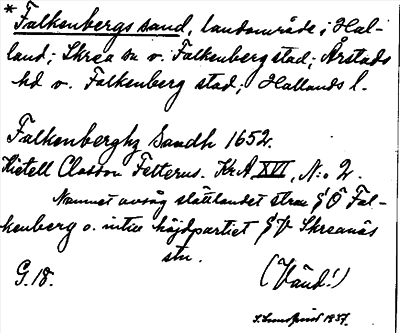 * Falkenbergs sand, landområde i Hal-
land; Skrea sn o. Falkenberg stad; Årstads
hd o. Falkenberg stad; Hallands l.
Falkenberghz Sandh 1652.
Kietell Classon Felterus. KrA XVII, N:o 2.
Namnet avsåg slättlandet strax Ö Fal-
kenberg o. intill höjdpartiet V Skreanäs
stn.
G. 18. (Vänd!)
1937.